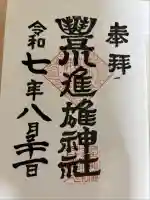 奉拝
豊川進雄神社
令和七年八月二十一日